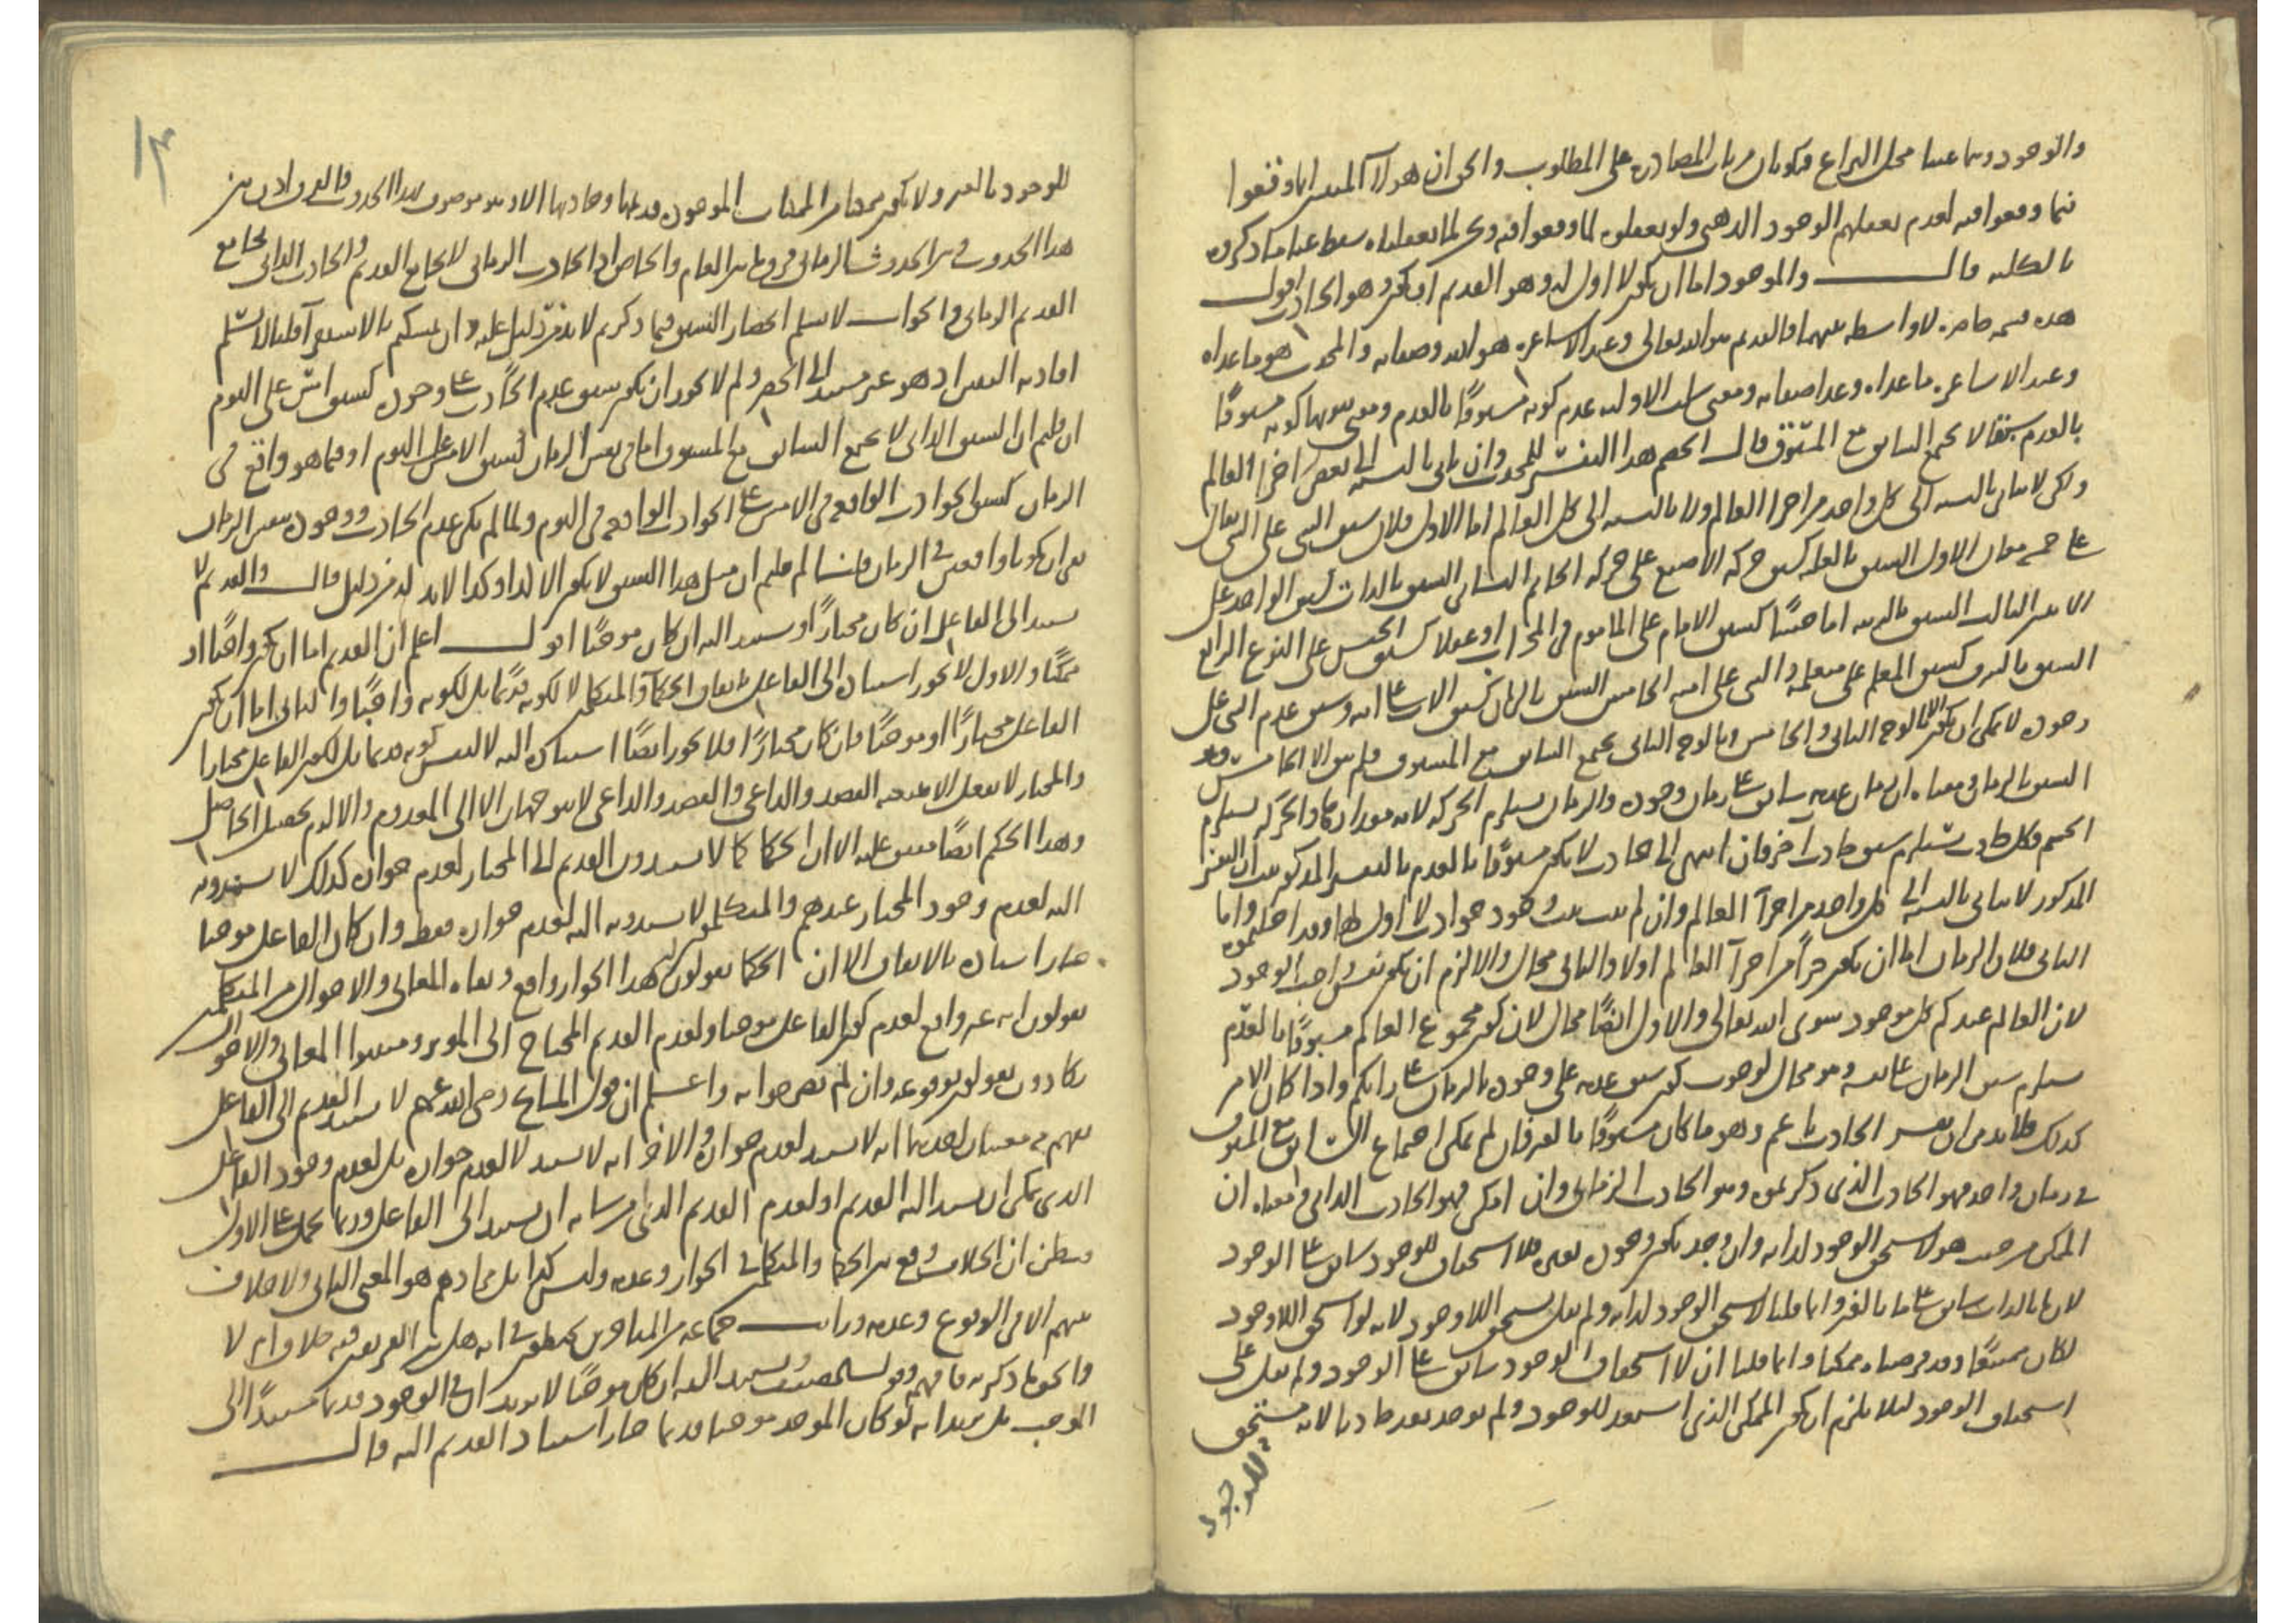 والوجود وساعسا محل النزاع فيكونان من باب المصادرة على المطلوب والحق ان هولآء المعسر انما وقعوا
فيما وقعوا فيه لعدم تعقلهم الوجود الذهني ولو تعقلوه لما وقعوا فيه ونحن لما تعقلناه سقط عنا ما ذكروه
بالكلية قال والموجود اما ان يكون لا اول له وهو القديم او يكون وهو الحادث اقول
هذه قسمة حاصرة لا واسطة بينهما فالقديم هو الله تعالى وعند الاشاعرة هو الله وصفاته والمحدث هو ما عداه
وعند الاشاعرة ما عداه وعدا صفاته ومعنى سلب الاولية عدم كونه مسبوقًا بالعدم ومعنى ثبوتها كونه مسبوقًا
بالعدم سبقا لا يجمع السابق مع المسبوق قال الخصم هذا التفسير للمحدث وان تاتى بالنسبة الى بعض اجزآء العالم
ولكن لا يتاتى بالنسبة الى كل واحد من اجزآء العالم ولا بالنسبة الى كل العالم اما الاول فلان سبق الشي على الشي يقال
على خمسة معان الاول السبق بالعلية كسبق حركة الاصبع على حركة الخاتم الثاني السبق بالذات كسبق الواحد على
الاثنين الثالث السبق بالرتبة اما حسًا كسبق الامام على الماموم في المحراب او عقلا كسبق الجنس على النوع الرابع
السبق بالشرف كسبق المعلم على متعلمه والنبي على امته الخامس السبق بالزمان كسبق الاب على ابنه وسبق عدم الشي على
وجوده لا يمكن ان يكون الا بالوجه الثاني والخامس وبالوجه الثاني يجمع السابق مع المسبوق فلم يبق الا الخامس وهو
السبق بالزمان ومعناه ان زمان عدمه سابق على زمان وجوده والزمان يستلزم الحركة لانه مقدارها والحركة تستلزم
الجسم وكل حادث يستلزم سبق حادث اخر فان انتهى الى حادث لا يكون مسبوقًا بالعدم بالتفسير المذكور ثبت ان التفسير
المذكور لا يتاتى بالنسبة الى كل واحد من اجزآء العالم وان لم ينته ثبت وجود حوادث لا اول لها وقد احلتموه واما
الثاني فلان الزمان اما ان يكون جزًا من اجزآء العالم اولا والثاني محال والا لزم ان يكون نفس واجب الوجود
لان العالم عندكم كل موجود سوى الله تعالى والاول ايضًا محال لان كون مجموع العالم مسبوقًا بالعدم
يستلزم سبق الزمان على نفسه وهو محال لوجوب كون سبق عدمه على وجوده بالزمان على رايكم واذا كان الامر
كذلك فلا بد من ان نفسر الحادث باعم وهو ما كان مسبوقًا بالغير فان لم يمكن اجتماع السابق مع المسبوق
في زمان واحد فهو الحادث الذي ذكرتموه وهو الحادث الزماني وان امكن فهو الحادث الذاتي ومعناه ان
الممكن من حيث هو لا يستحق الوجود لذاته وان وجد يكون وجوده بغيره فلا استحقاق للوجود سابق على الوجود
لان ما بالذات سابق على ما بالغير وانما قلنا لا يستحق الوجود لذاته ولم نقل يستحق اللاوجود لانه لو استحق اللاوجود
لكان ممتنعًا وقد فرضناه ممكنا وانما قلنا ان لا استحقاق الوجود سابق على الوجود ولم نقل على
استحقاق الوجود ليلا يلزم ان يكون الممكن الذي استعد للوجود ولم يوجد بعد حادثا لانه مستحق
للوجود
١٣
للوجود بالغير ولا يكون ممكن من الممكنات الموجودة قديمها وحادثها الا وهو موصوف بهذا الحدوث والفرق اذن بين
هذا الحدوث وبين الحدوث الزماني فرق ما بين العام والخاص اذ الحادث الزماني لا يجامع القديم والحادث الذاتي يجامع
القديم الزماني والجواب لا نسلم انحصار السبق فيما ذكرتم لا بد من دليل عليه وان تمسكتم بالاستقرآء قلنا لا نسلم
افادته اليقين اذ هو غير مستند الى الحصر ولم لا يجوز ان يكون سبق عدم الحادث على وجوده كسبق امس على اليوم
ان قلتم ان السبق الذاتي لا يجمع السابق مع المسبوق اما في نفس الزمان كسبق الامس على اليوم او فيما هو واقع في
الزمان كسبق الحوادث الواقعة في الامس على الحوادث الواقعة في اليوم ولما لم يكن عدم الحادث ووجوده نفس الزمان
بقي ان يكونا واقعين في الزمان قلنا لم قلتم ان مثل هذا السبق لا يكون الا لذا وكذا لا بد له من دليل قال والقديم لا
يستند الى الفاعل ان كان مختارًا ويستند اليه ان كان موجبًا اقول اعلم ان القديم اما ان يكون واجبًا او
ممكنًا والاول لا يجوز استناده الى الفاعل باتفاق الحكمآء والمتكلمين لا لكونه قديمًا بل لكونه واجبًا والثاني اما ان يكون
الفاعل مختارًا او موجبًا فان كان مختارًا فلا يجوز ايضًا استناده اليه لا لنفس كونه قديما بل لكون الفاعل مختارا
والمختار لا يفعل الا بتبعية القصد والداعي والقصد والداعي لا يتوجهان الا الى المعدوم والا لزم تحصيل الحاصل
وهذا الحكم ايضًا متفق عليه الا ان الحكما كما لا يسندون القديم الى المختار لعدم جوازه كذلك لا يسندونه
اليه لعدم وجود المختار عندهم والمتكلمون لا يسندونه اليه لعدم جوازه فقط وان كان الفاعل موجبا
جاز استناده بالاتفاق الا ان الحكما يقولون هذا الجواز واقع ونفاة المعاني والاحوال من المتكلمين
يقولون انه غير واقع لعدم كون الفاعل موجبا ولعدم القديم المحتاج الى المؤثر ومثبتوا المعاني والاحوال
يكادون يقولون بوقوعه وان لم يصرحوا به واعلم ان قول المشايخ رضي الله عنهم لا يستند القديم الى الفاعل
يفهم منه معنيان احدهما انه لا يستند لعدم جوازه والاخر انه لا يستند لا لعدم جوازه بل لعدم وجود الفاعل
الذي يمكن ان يستند اليه القديم او لعدم القديم الذي من شانه ان يستند الى الفاعل وربما يحمل على الاول
فيظن ان الخلاف وقع بين الحكما والمتكلمين في الجواز وعدمه وليس كذا بل مرادهم هو المعنى الثاني ولا خلاف
بينهم الا في الوقوع وعدمه ورايت جماعة من المتاخرين يخبطون في انه هل بين الفريقين فيه خلاف ام لا
والحق ما ذكرته فافهمه وقول المصنف ويستند اليه ان كان موجبًا لا يريد ان في الوجود قديما مستندًا الى
الموجب بل يريد انه لو كان الموجد موجبا قديما جاز استناد القديم اليه قال